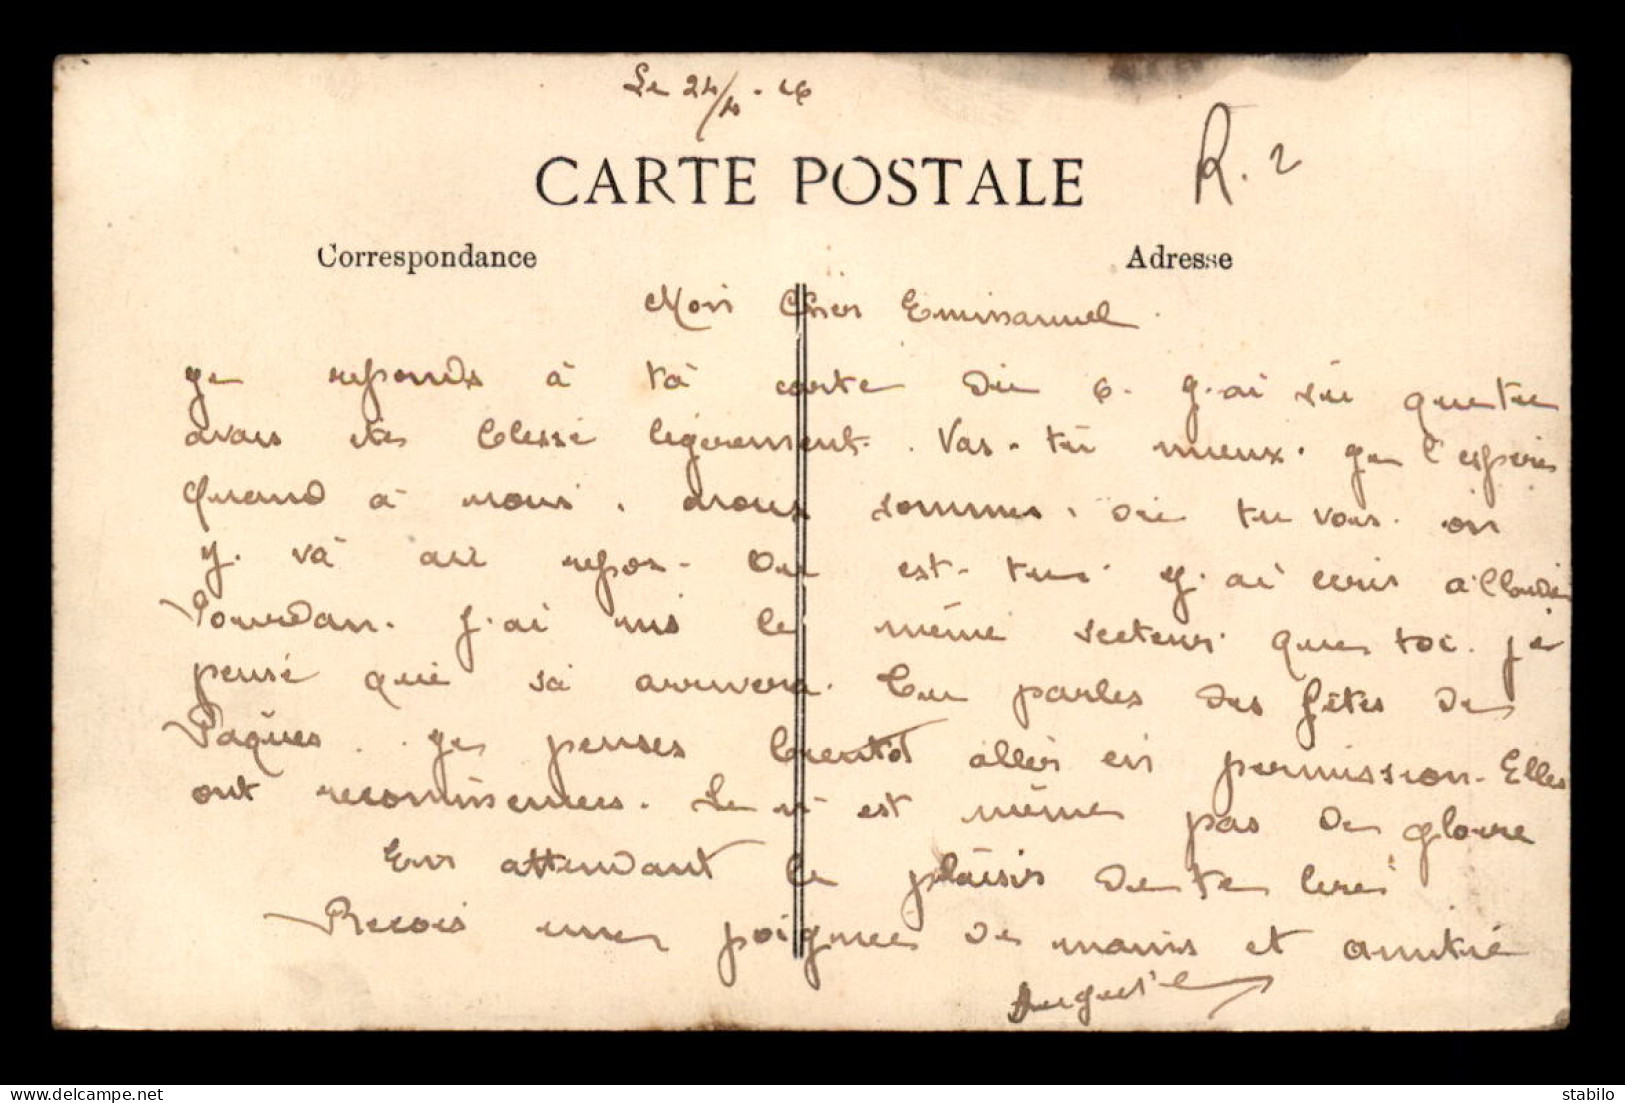 Le 24/4 - 16
CARTE POSTALE
R. 2
Correspondance
Adresse
Mon Cher Emmanuel
ge reponds à tà carte du 6. g. ai sù que tu
avais été blessé légerement. Vas-tù mieux. ge l'espère
quand à nous. nous sommes. où tu vois. on
y. và au repos. Ou est-tu. y. ai ecris à Claudin
Jourdan. J. ai mis le même secteur que toi. je
pense que sà arrivera. Tu parles des fêtes de
Pâques. ge penses bientôt aller en permission. Elles
ont recommencees. Ce n'est même pas de gloire
En attendant le plàisir de te lire
Recois une poignee de mains et amitié
Auguste
stabilo